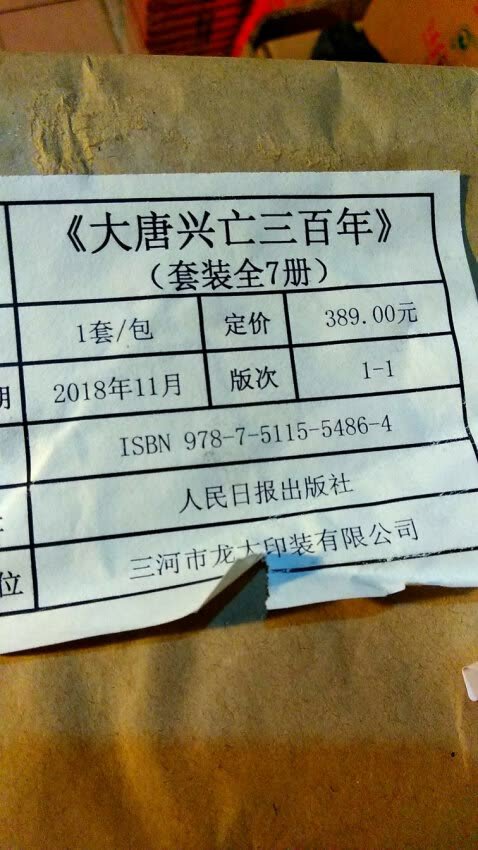 《大唐兴亡三百年》
（套装全7册）
1套/包 定价 389.00元
期 2018年11月 版次 1-1
ISBN 978-7-5115-5486-4
人民日报出版社
位 三河市龙大印装有限公司